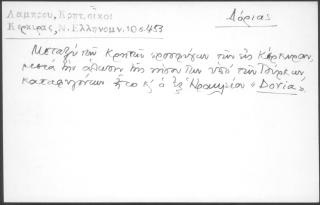 Λάμπρου, Κρητ. οἶκοι
Κερκύρας, Ν. Ἑλληνομν. 10 σ. 453
Δόριας
Μεταξὺ τῶν Κρητῶν προσφύγων τῶν εἰς Κέρκυραν,
μετὰ τὴν ἅλωσιν τῆς νήσου των ὑπὸ τῶν Τούρκων,
καταφυγόντων ἦτο κ' ὁ ἐξ Ἡρακλείου «Doria».